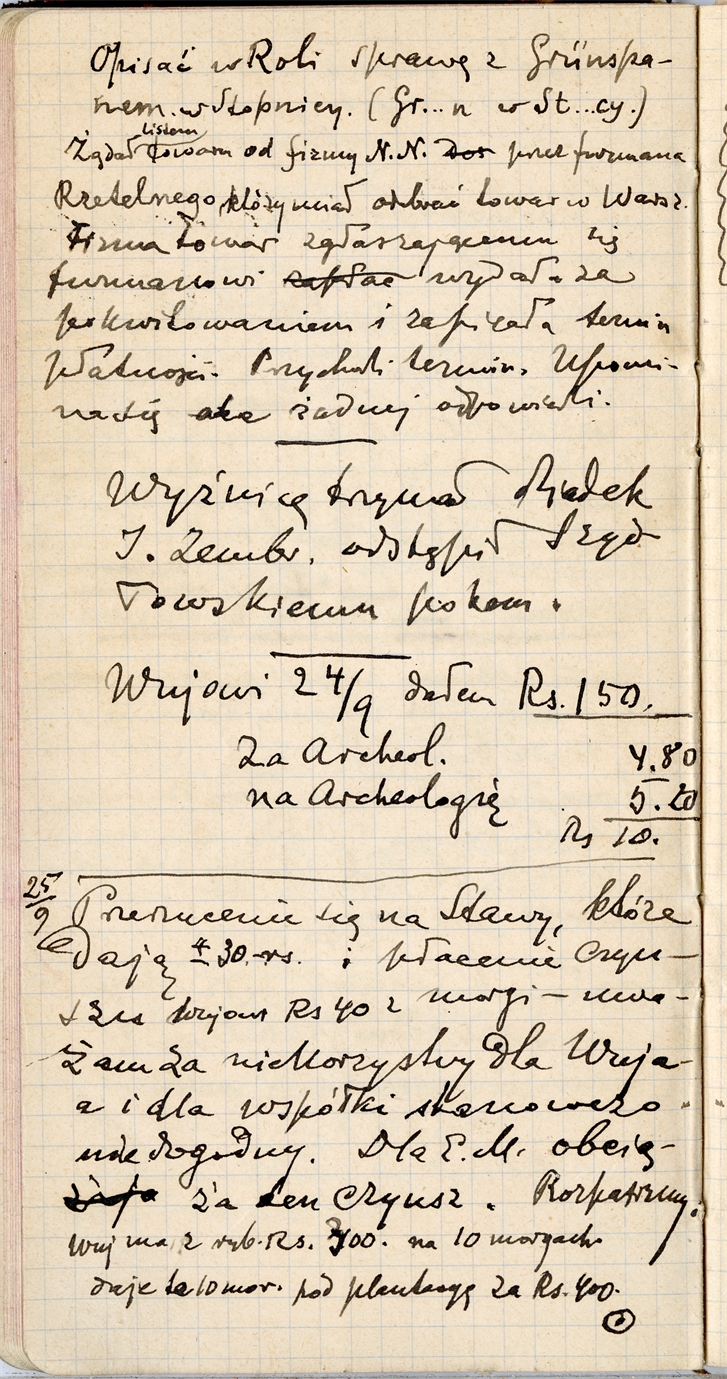 Opisać w Roli sprawę z Grünspa-
nem w Stopnicy. (Gr...n w St...cy.)
listem
Żądał towaru od firmy N.N. przez furmana
Rzetelnego, który miał odebrać towar w Warsz.
Firma towar zgłaszającemu się
furmanowi wydała za
pokwitowaniem i zapisała termin
płatności. Przychodzi termin. Upomi-
na się ale żadnej odpowiedzi.
Wyżnicę trzymał dziadek
J. Zembr. odstąpił Szyd
łowskiemu potem.
Wujowi 24/9 dałem Rs. 150.
Za Archeol. 4.80
na Archeologię 5.20
Rs 10.
25/9 Przerzucenie się na Stawy, które
Dają 30 rs. i płacenie czyn-
szu Wujowi Rs 40 z morgi – uwa-
żam za niekorzystny dla Wuja
a i dla współki stanowczo
niedogodny. Dla E.M. obcią-
ża ten czynsz. Rozpatrzmy.
Wuj ma z ryb. Rs. 300. na 10 morgach.
daje te 10 mor. pod plantację za Rs. 400.